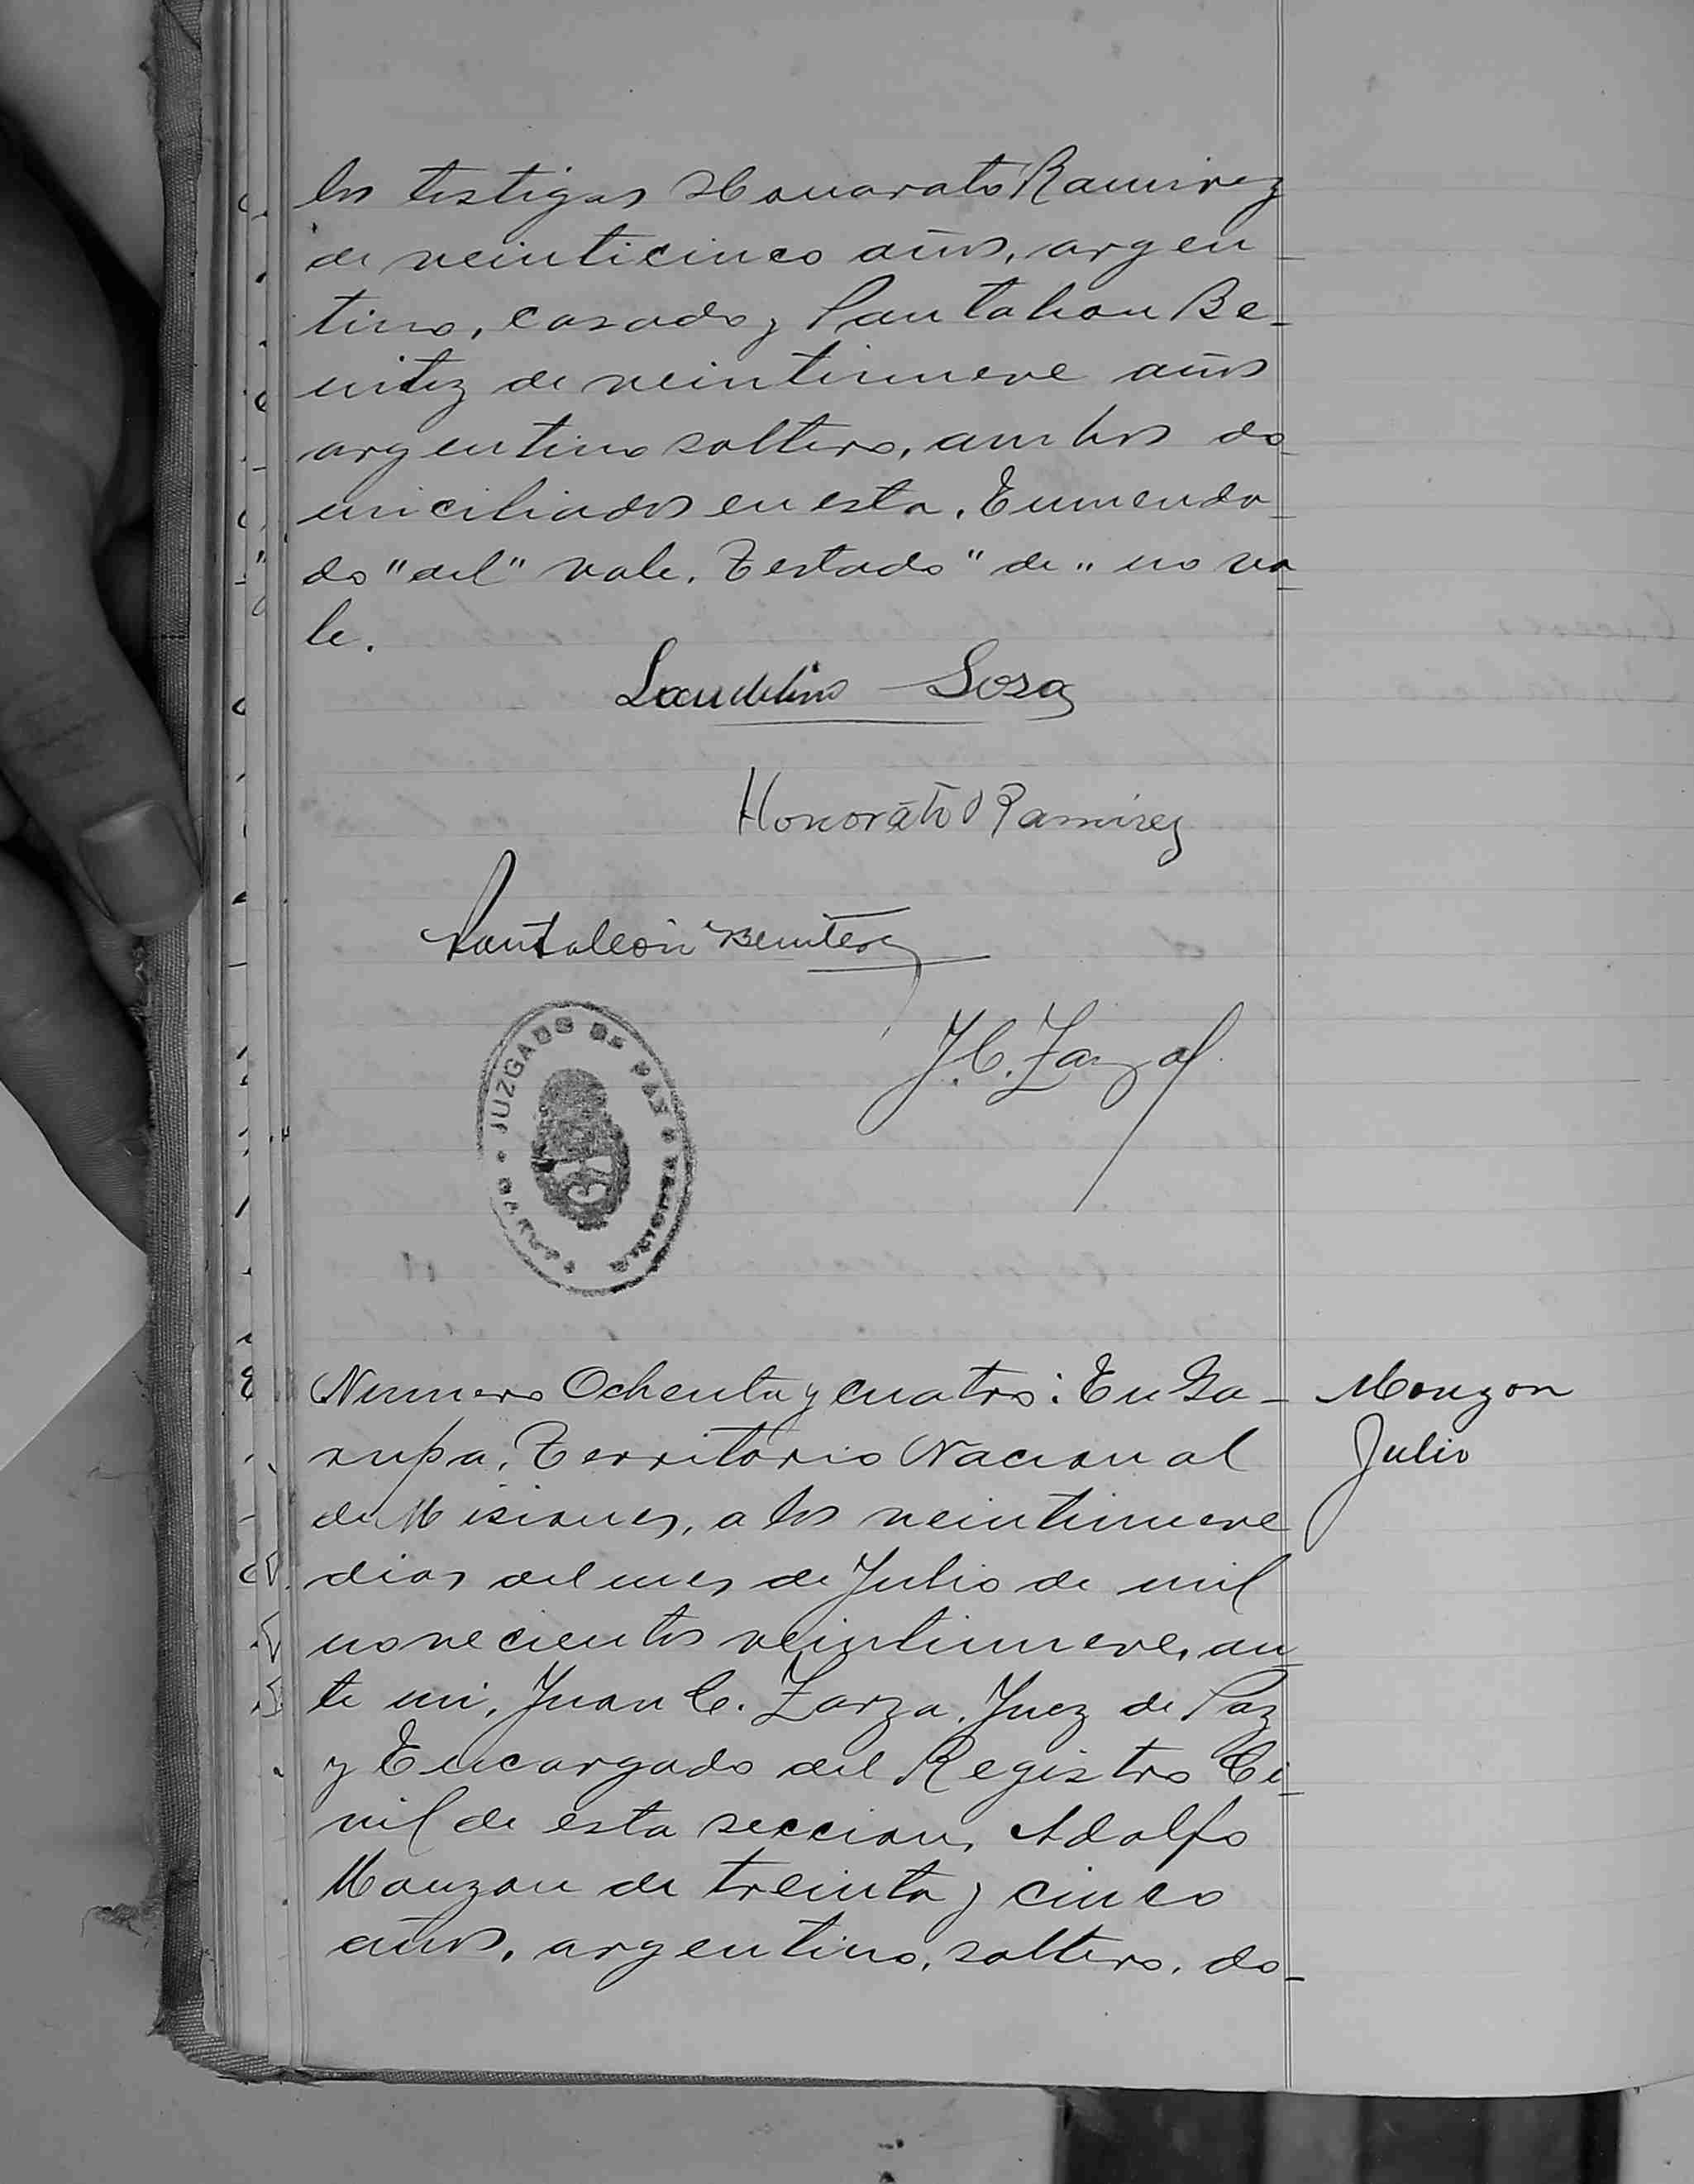 los testigos Honorato Ramirez
de veinticinco años, argen
tino, casado y Pantaleon Be-
nitez de veintinueve años
argentino soltero, ambos do
miciliados en esta. Enmenda
do "del" vale. Testado "de" no va
le.
Laudelino Sosa
Honorato Ramirez
Pantaleón Benitez
J.C. Zarza
JUZGADO DE PAZ
Numero Ochenta y cuatro: En Ga-
rupa, Territorio Nacional
de Misiones, a los veintinueve
dias del mes de Julio de mil
novecientos veintinueve, an
te mi, Juan C. Zarza, Juez de Paz
y Encargado del Registro Ci
vil de esta seccion, Adolfo
Monzon de treinta y cinco
años, argentino, soltero, do-
Monzon
Julio